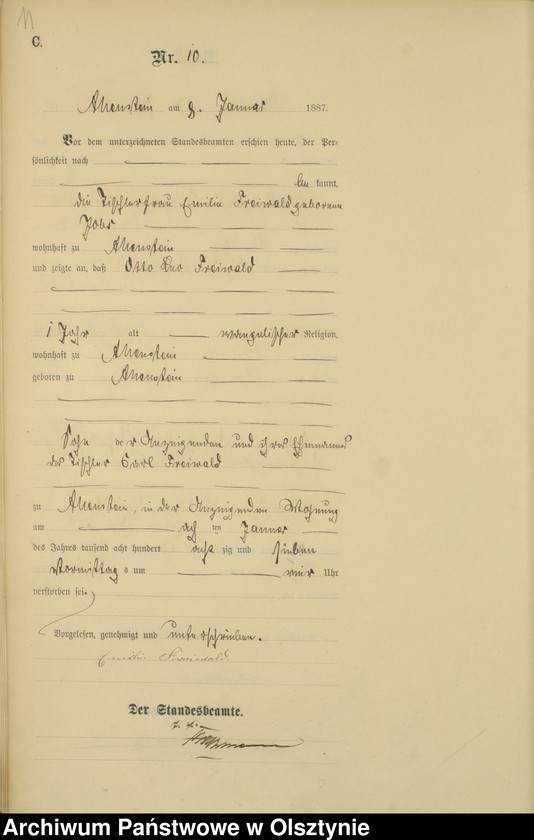 11
C.
Nr. 10.
Allenstein am 8. Januar 1887.
Vor dem unterzeichneten Standesbeamten erschien heute, der Per-
sönlichkeit nach
be kannt,
die Tischlerfrau Emilie Freiwald geborene
wohnhaft zu Allenstein
und zeigte an, daß Otto Leo Freiwald
1 Jahr alt evangelischer Religion,
wohnhaft zu Allenstein
geboren zu Allenstein
Sohn der Anzeigenden und ihres Ehemannes
des Tischler Carl Freiwald
zu Allenstein, in der Anzeigenden Wohnung
am acht ten Januar
des Jahres tausend acht hundert acht zig und sieben
Vormittag s um vier Uhr
verstorben sei.
Vorgelesen, genehmigt und unterschrieben.
Emilie Freiwald.
Der Standesbeamte.
Archiwum Państwowe w Olsztynie